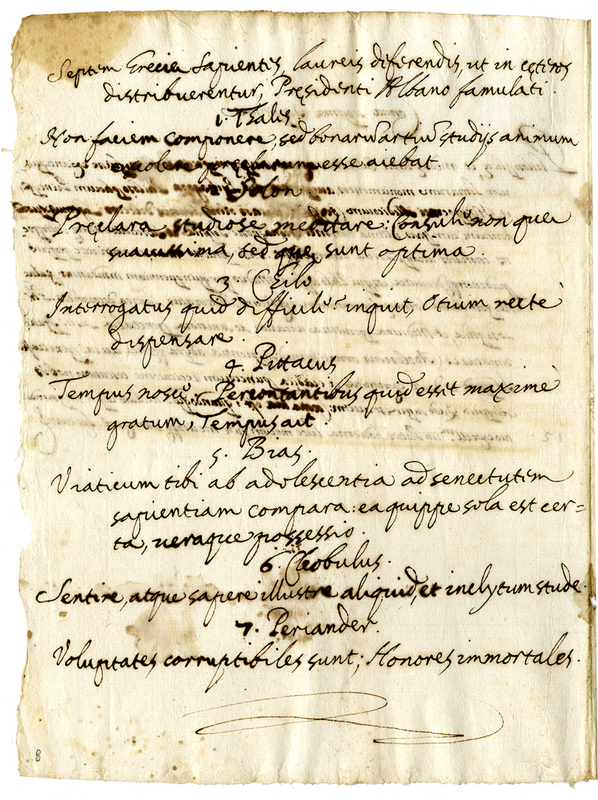 Septem Greciæ Sapientes, laureis diferendis, ut in cęteros
distribuerentur, Pręsidenti Albano famulati.
1. Thalis.
Non faciem componere, sed bonarū artiū studijs animum
excolere pręclarum esse aiebat.
2. Solon
Pręclara studiose meditare: Consule non quę
suavissima, sed quę sunt optima.
3 Chilo
Interrogatus quid difficile inquit, Otium rectè
dispensare.
4. Pittacus
Tempus nosce. Percontantibus quid esset maximè
gratum, Tempus ait.
5. Bias.
Viaticum tibi ab adolescentia ad senectutem
sapientiam compara: ea quippe sola est cer=
ta, veraque possessio.
6. Cleobulus.
Sentire, atque sapere illustre aliquid, et inclytum stude.
7. Periander.
Voluptates corruptibiles sunt; Honores immortales.
8